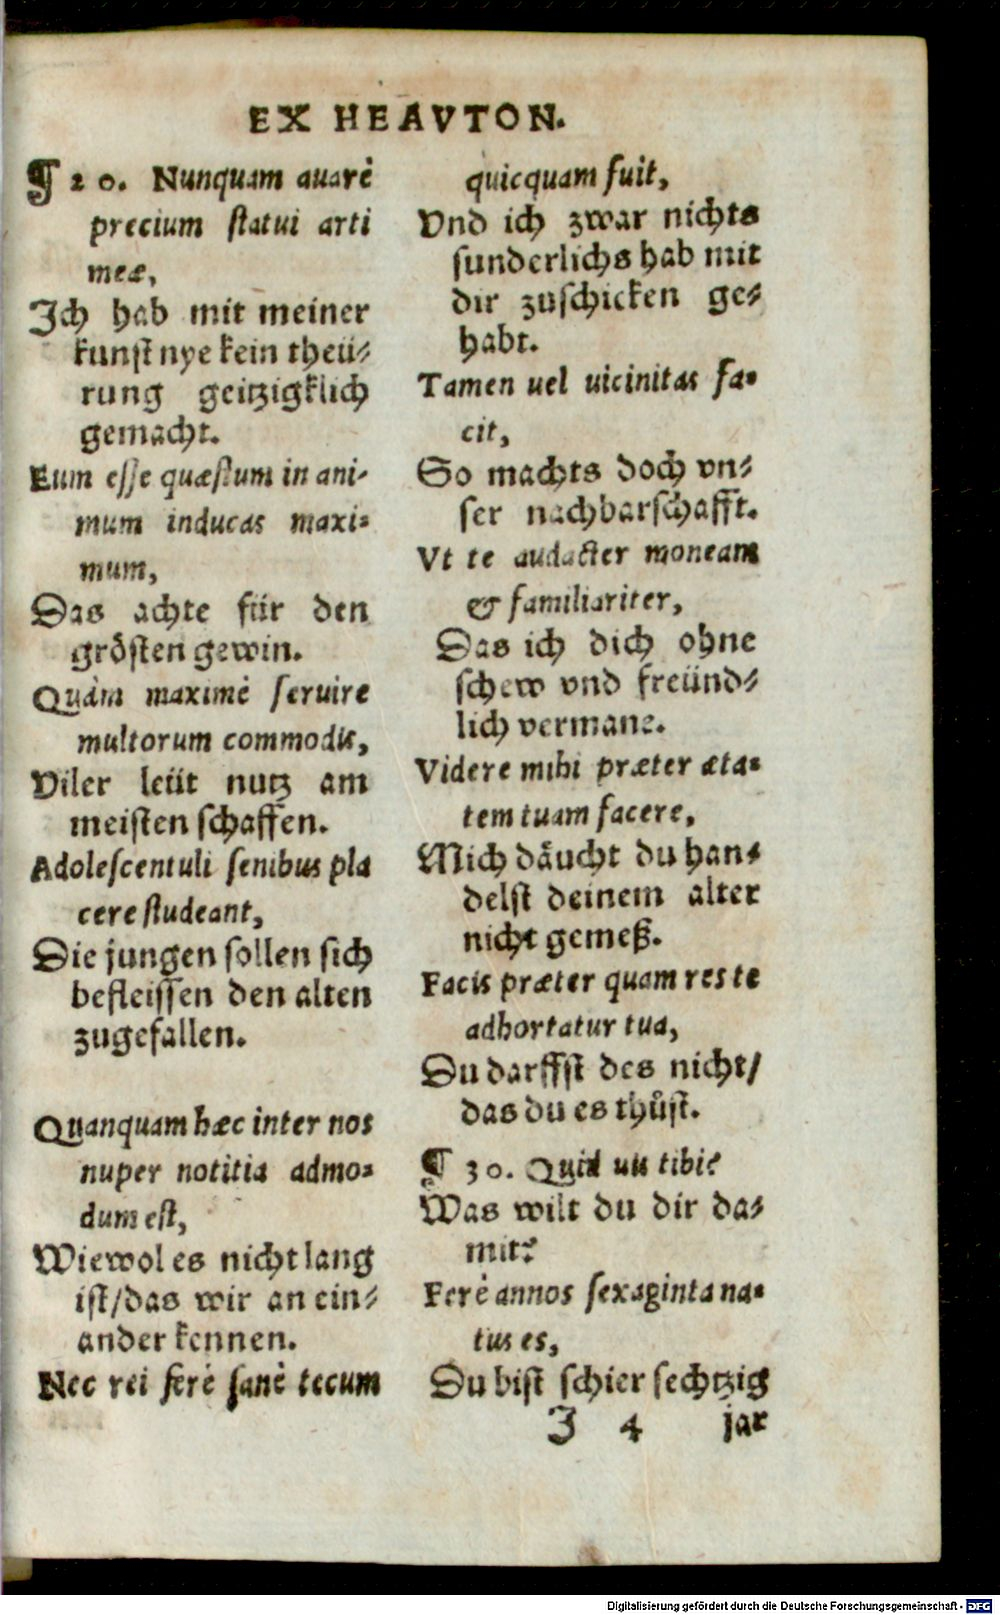 EX HEAVTON.
¶ 20. Nunquam auarè
precium statui arti
meæ,
Ich hab mit meiner
kunst nye kein theü⸗
rung geitzigklich
gemacht.
Eum esse quæstum in ani-
mum inducas maxi-
mum,
Das achte für den
grösten gewin.
Quàm maximè seruire
multorum commodis,
Viler leüt nutz am
meisten schaffen.
Adolescentuli senibus pla
cere studeant,
Die jungen sollen sich
befleissen den alten
zugefallen.
Quanquam hæc inter nos
nuper notitia admo-
dum est,
Wiewol es nicht lang
ist/das wir an ein⸗
ander kennen.
Nec rei ferè sanè tecum
quicquam fuit,
Vnd ich zwar nichts
sunderlichs hab mit
dir zuschicken ge⸗
habt.
Tamen uel uicinitas fa-
cit,
So machts doch vn⸗
ser nachbarschafft.
Vt te audacter moneam
& familiariter,
Das ich dich ohne
schew vnd freünd⸗
lich vermane.
Videre mihi præter æta-
tem tuam facere,
Mich däucht du han⸗
delst deinem alter
nicht gemeß.
Facis præter quam res te
adhortatur tua,
Du darffst des nicht/
das du es thůst.
¶ 30. Quid uis tibi?
Was wilt du dir da⸗
mit?
Ferè annos sexaginta na-
tus es,
Du bist schier sechtzig
I 4 jar
Digitalisierung gefördert durch die Deutsche Forschungsgemeinschaft - DFG